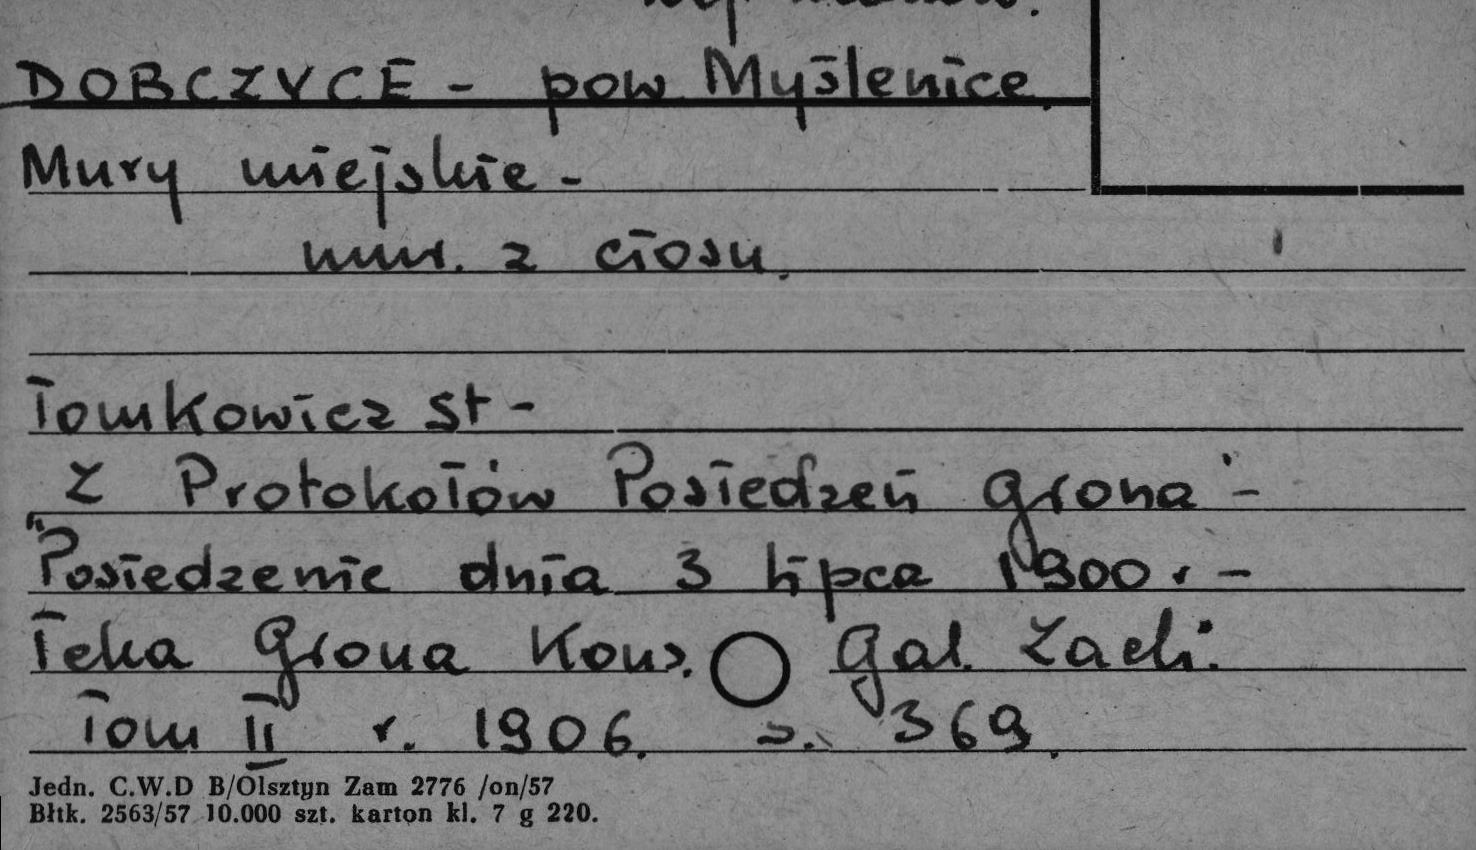 DOBCZYCE - pow Myślenice.
Mury miejskie -
mur. z ciosu.
Tomkowicz St -
Z Protokołów Posiedzeń Grona -
"Posiedzenie dnia 3 lipca 1900 r -
Teka Grona Kons. Gal. Zach.
Tom II r. 1906. s. 369.
Jedn. C.W.D B/Olsztyn Zam 2776 /on/57
Błtk. 2563/57 10.000 szt. karton kl. 7 g 220.